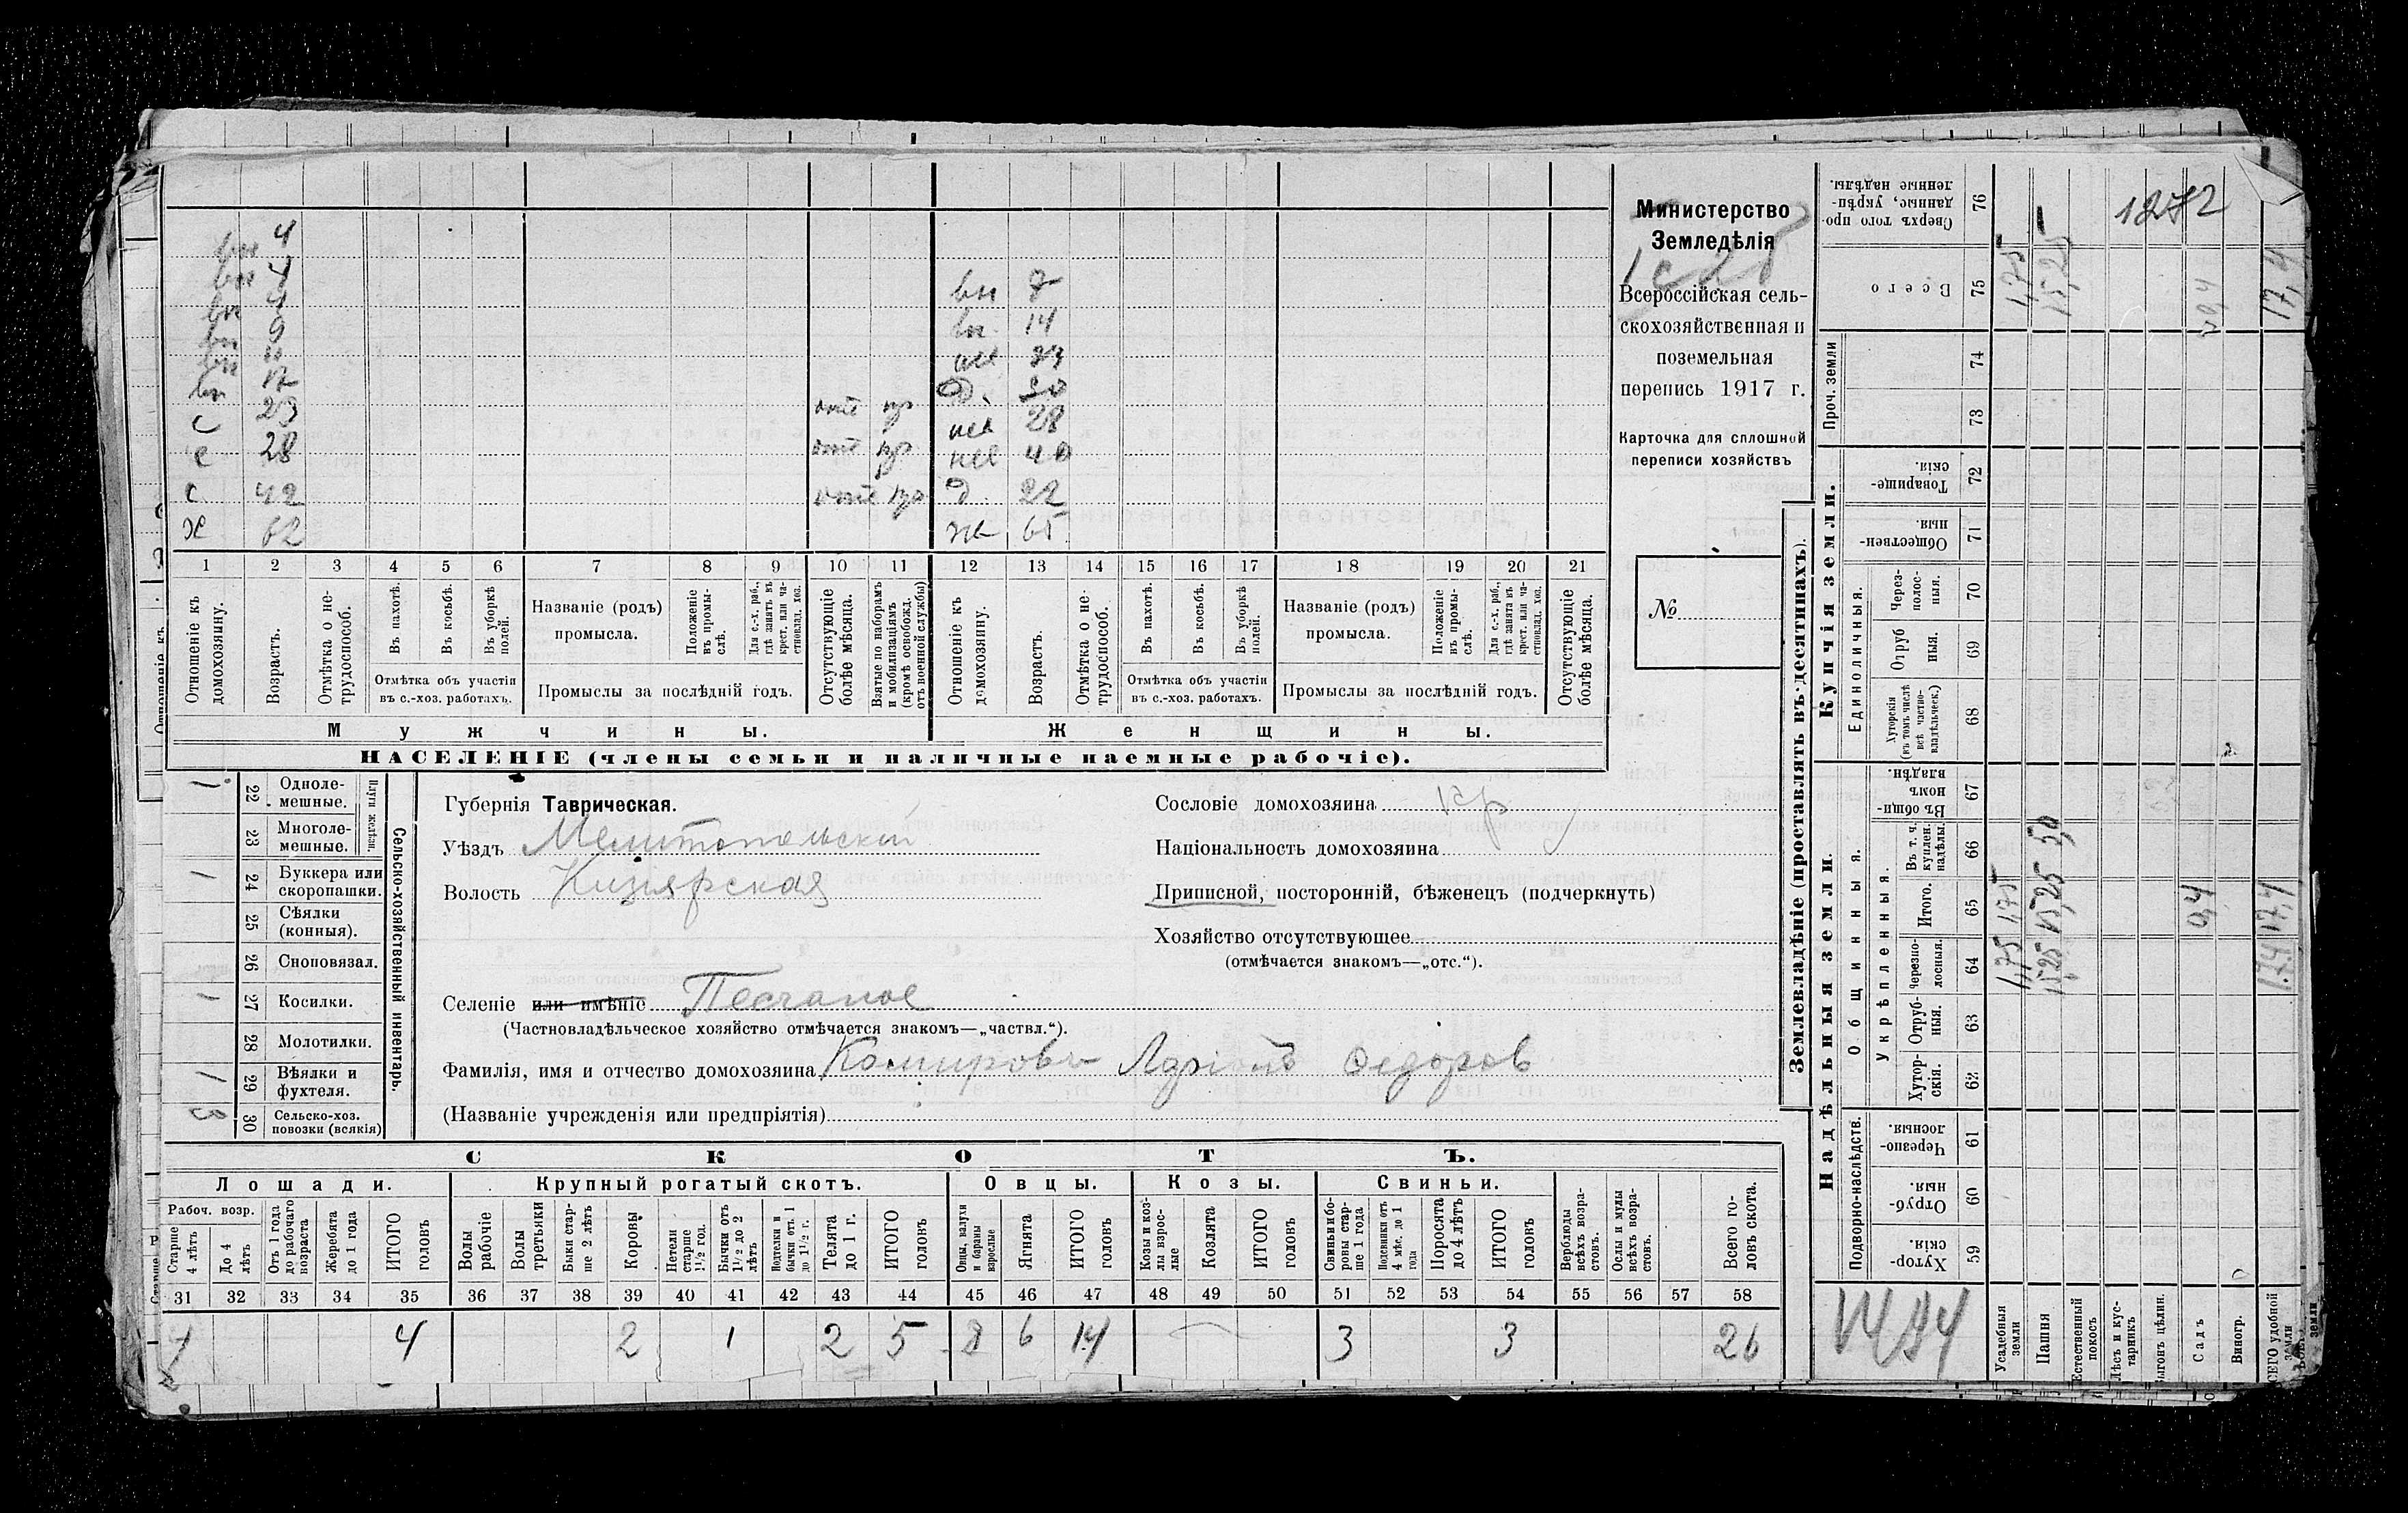 вн 4
вн 4 вн 7
вн 4 вн 14
вн 9
вн 11 30
вн 17 28
с 23
с 28 д. 22
с 42 ж 65
х 62
1 2 3 4 5 6 7 8 9 10 11 12 13 14 15 16 17 18 19 20 21
Отношеніе къ домохозяину.
Возрастъ.
Отмѣтка о не-трудоспособ.
Въ пахотѣ.
Въ косьбѣ.
Въ уборкѣ полей.
Отмѣтка объ участіи въ с.-хоз. работахъ.
Названіе (родъ) промысла.
Положеніе въ промы-слѣ.
Для с.-х. раб., гдѣ занятъ въ крест. или ча-стновлад. хоз.
Промыслы за послѣдній годъ.
Отсутствующіе болѣе мѣсяца.
Взятые по наборамъ и мобилизаціямъ (кромѣ освобожд. отъ военной службы)
Отношеніе къ домохозяину.
Возрастъ.
Отмѣтка о не-трудоспособ.
Въ пахотѣ.
Въ косьбѣ.
Въ уборкѣ полей.
Отмѣтка объ участіи въ с.-хоз. работахъ.
Названіе (родъ) промысла.
Положеніе въ промы-слѣ.
Для с.-х. раб., гдѣ занята въ крест. или ча-стновлад. хоз.
Промыслы за послѣдній годъ.
Отсутствующіе болѣе мѣсяца.
Мужчины. Женщины.
НАСЕЛЕНІЕ (члены семьи и наличные наемные рабочіе).
Министерство
Земледѣлія
Всероссійская сель-
скохозяйственная и
поземельная
перепись 1917 г.
Карточка для сплошной
переписи хозяйствъ
№
1 22 Одноле-мешные.
23 Многоле-мешные.
Плуги желѣзн.
1 24 Буккера или скоропашки.
25 Сѣялки (конныя).
26 Сноповязал.
1 27 Косилки.
28 Молотилки.
1 29 Вѣялки и фухтеля.
3 30 Сельско-хоз. повозки (всякія)
Сельско-хозяйственный инвентарь.
Губернія Таврическая.
Уѣздъ Мелитопольскій
Волость Кизіярская
Селеніе или имѣніе Песчаное
(Частновладѣльческое хозяйство отмѣчается знакомъ—„частвл.“).
Фамилія, имя и отчество домохозяина Федоров
(Названіе учрежденія или предпріятія)
Сословіе домохозяина кр
Національность домохозяина
Приписной, посторонній, бѣженецъ (подчеркнуть)
Хозяйство отсутствующее
(отмѣчается знакомъ—„отс.“).
СКОТЪ.
Лошади. Крупный рогатый скотъ. Овцы. Козы. Свиньи.
Рабоч. возр.
Старше 4 лѣтъ
До 4 лѣтъ
Отъ 1 года до рабочаго возраста
Жеребята до 1 года
ИТОГО головъ
Волы рабочіе
Волы третьяки
Быки стар-ше 2 лѣтъ
Коровы
Нетели старше 1½ год.
Бычки отъ 1½ до 2 лѣтъ
Подтелки и бычки отъ 1 до 1½ г.
Телята до 1 г.
ИТОГО головъ
Овцы, валухи и бараны взрослые
Ягнята
ИТОГО головъ
Козы и коз-лы взрос-лые
Козлята
ИТОГО головъ
Свиньи и бо-ровы стар-ше 1 года
Подсвинки отъ 4 мѣс. до 1 года
Поросята до 4 лѣтъ
ИТОГО головъ
Верблюды всѣхъ возра-стовъ.
Ослы и мулы всѣхъ возра-стовъ.
Всего го-ловъ скота.
31 32 33 34 35 36 37 38 39 40 41 42 43 44 45 46 47 48 49 50 51 52 53 54 55 56 57 58
4 4 2 1 2 5 8 6 14 3 3 26
Землевладѣніе (проставлять въ десятинахъ).
Сверхъ того про-данные, укрѣп-ленные надѣлы. 76
Всего 75 1,75 15,25 0,4 17,4
1272
Проч. земли 74 73
Купчія земли.
Товарище-скія. 72
Обществен-ныя. 71
Единоличныя.
Через-полос-ныя. 70
Отруб ныя. 69
Хуторскія (въ томъ числѣ всѣ частно-владѣльческ.) 68
Надѣльныя земли.
Общинныя.
Въ общи-номъ владѣн. 67
Укрѣпленныя.
Въ т. ч. куплен. надѣлы. 66 5,0
Итого. 65 1,75 15,25 0,4 17,4
Черезпо-лосныя. 64 1,75 15,25 17,4
Отруб-ныя. 63
Хутор-скія. 62
Подворно-наслѣдств.
Черезпо-лосныя 61
Отруб-ныя. 60
Хутор-скія. 59
Усадебныя земли
Пашня
Естественный покосъ
Лѣсъ и кус-тарникъ
Выгонъ цѣлин.
Садъ
Виногр.
ВСЕГО удобной земли